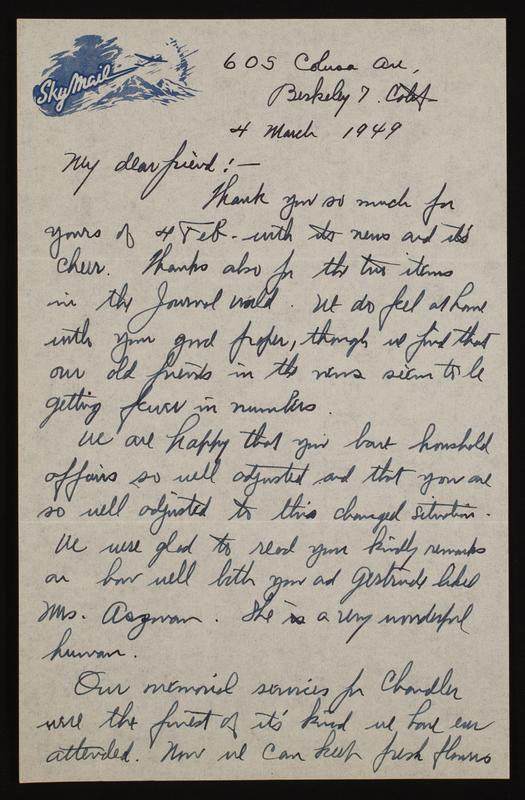 Sky Mail
605 Colusa Ave,
Berkeley 7. Calif
4 March 1949
My dear friend! —
Thank you so much for
yours of 4 Feb. with its news and it's
cheer. Thanks also for the two items
in the Journal World. We do feel at home
with your good paper, though we find that
our old friends in the news seem to be
getting fewer in numbers.
We are happy that your have household
affairs so well adjusted and that you are
so well adjusted to this changed situation.
We were glad to read your kindly remarks
on how well both you ad Gertrude liked
Mrs. . She is a very wonderful
human.
Our memorial services for Chandler
were the finest of it's kind we have ever
attended. Now we can keep fresh flowers